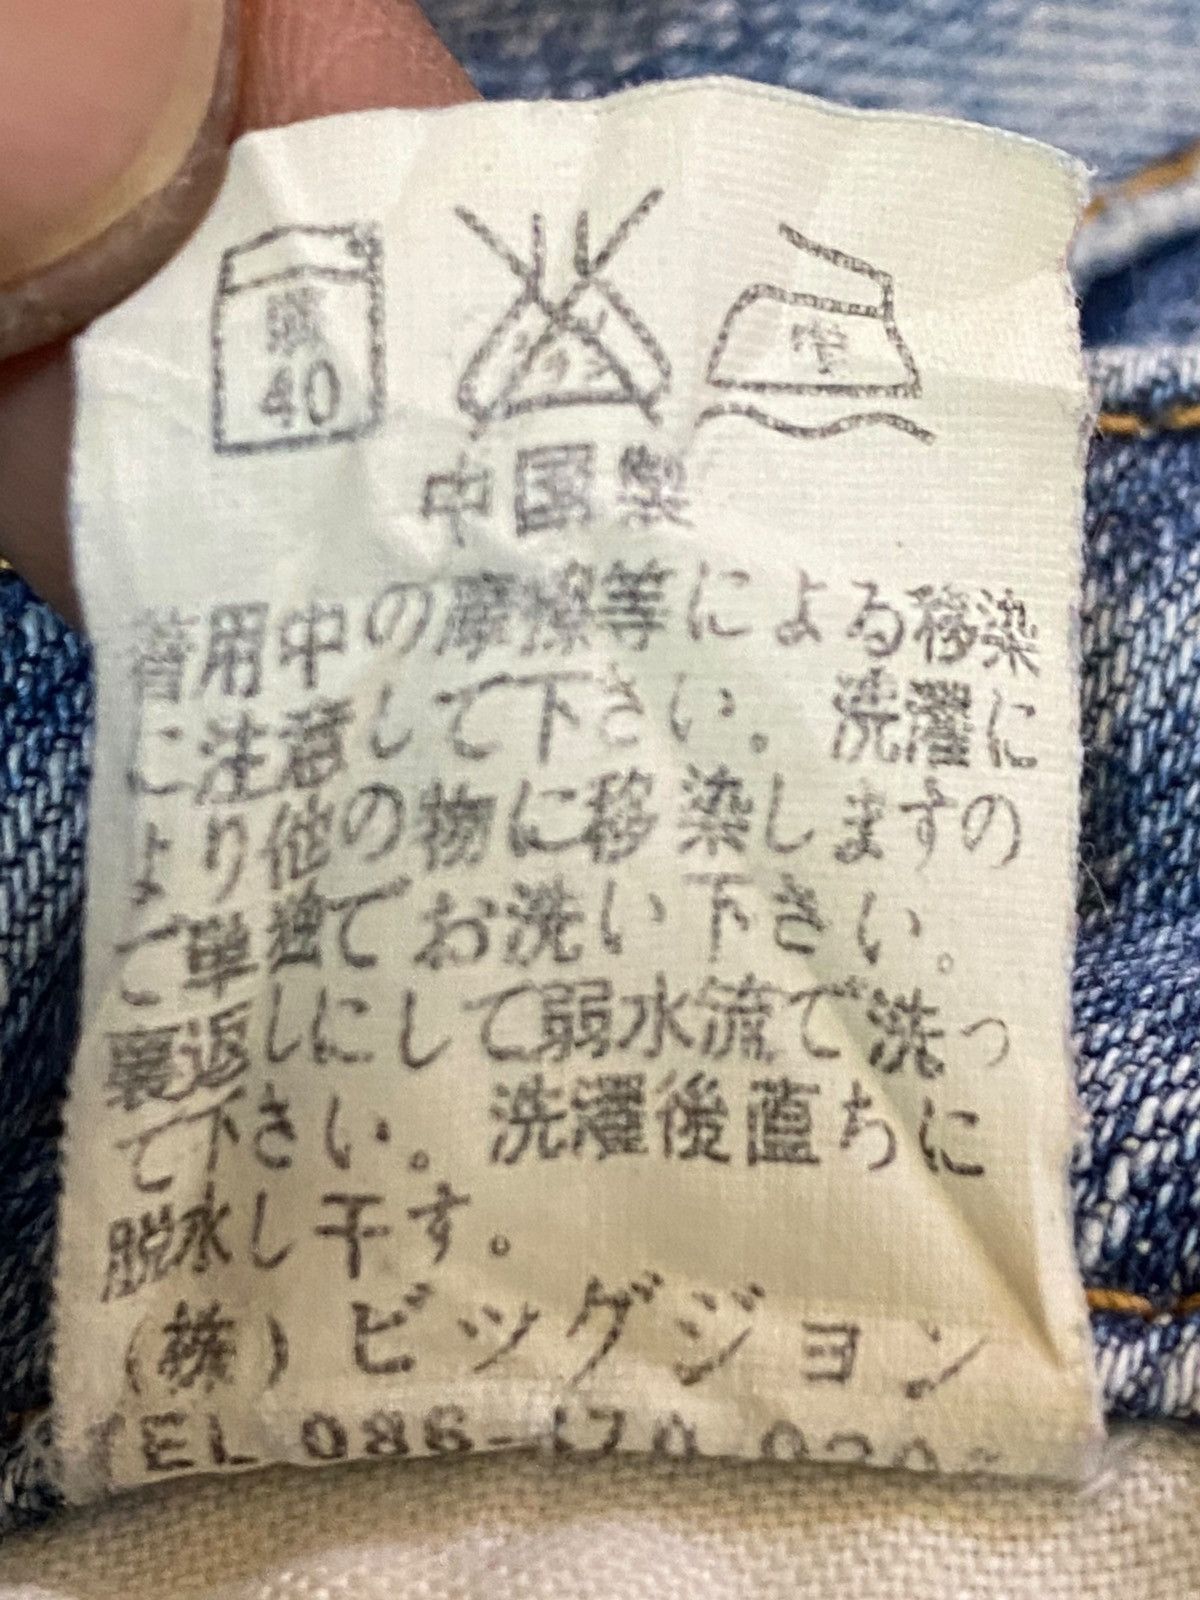 弱
40
中
中国製
着用中の摩擦等による移染
に注意して下さい。洗濯に
より他の物に移染しますの
で単独でお洗い下さい。
裏返しにして弱水流で洗っ
て下さい。洗濯後直ちに
脱水し干す。
(株)ビッグジョン
TEL 086-